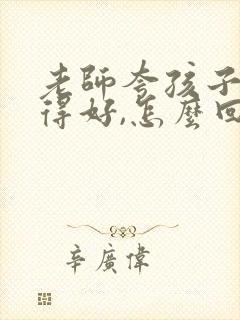 老師夸孩子
得好,怎麼回
辛廣偉